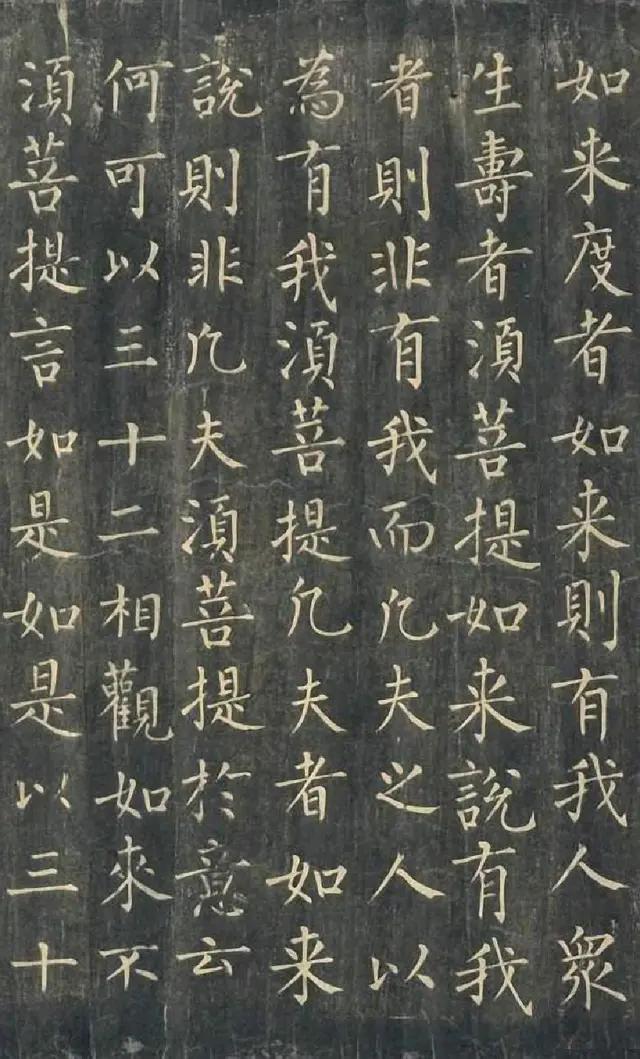 如来度者如来則有我人衆
生壽者湏菩提如来說有我
者則非有我而凢夫之人以
為有我湏菩提凢夫者如来
說則非凢夫湏菩提於意云
何可以三十二相觀如來不
湏菩提言如是如是以三十